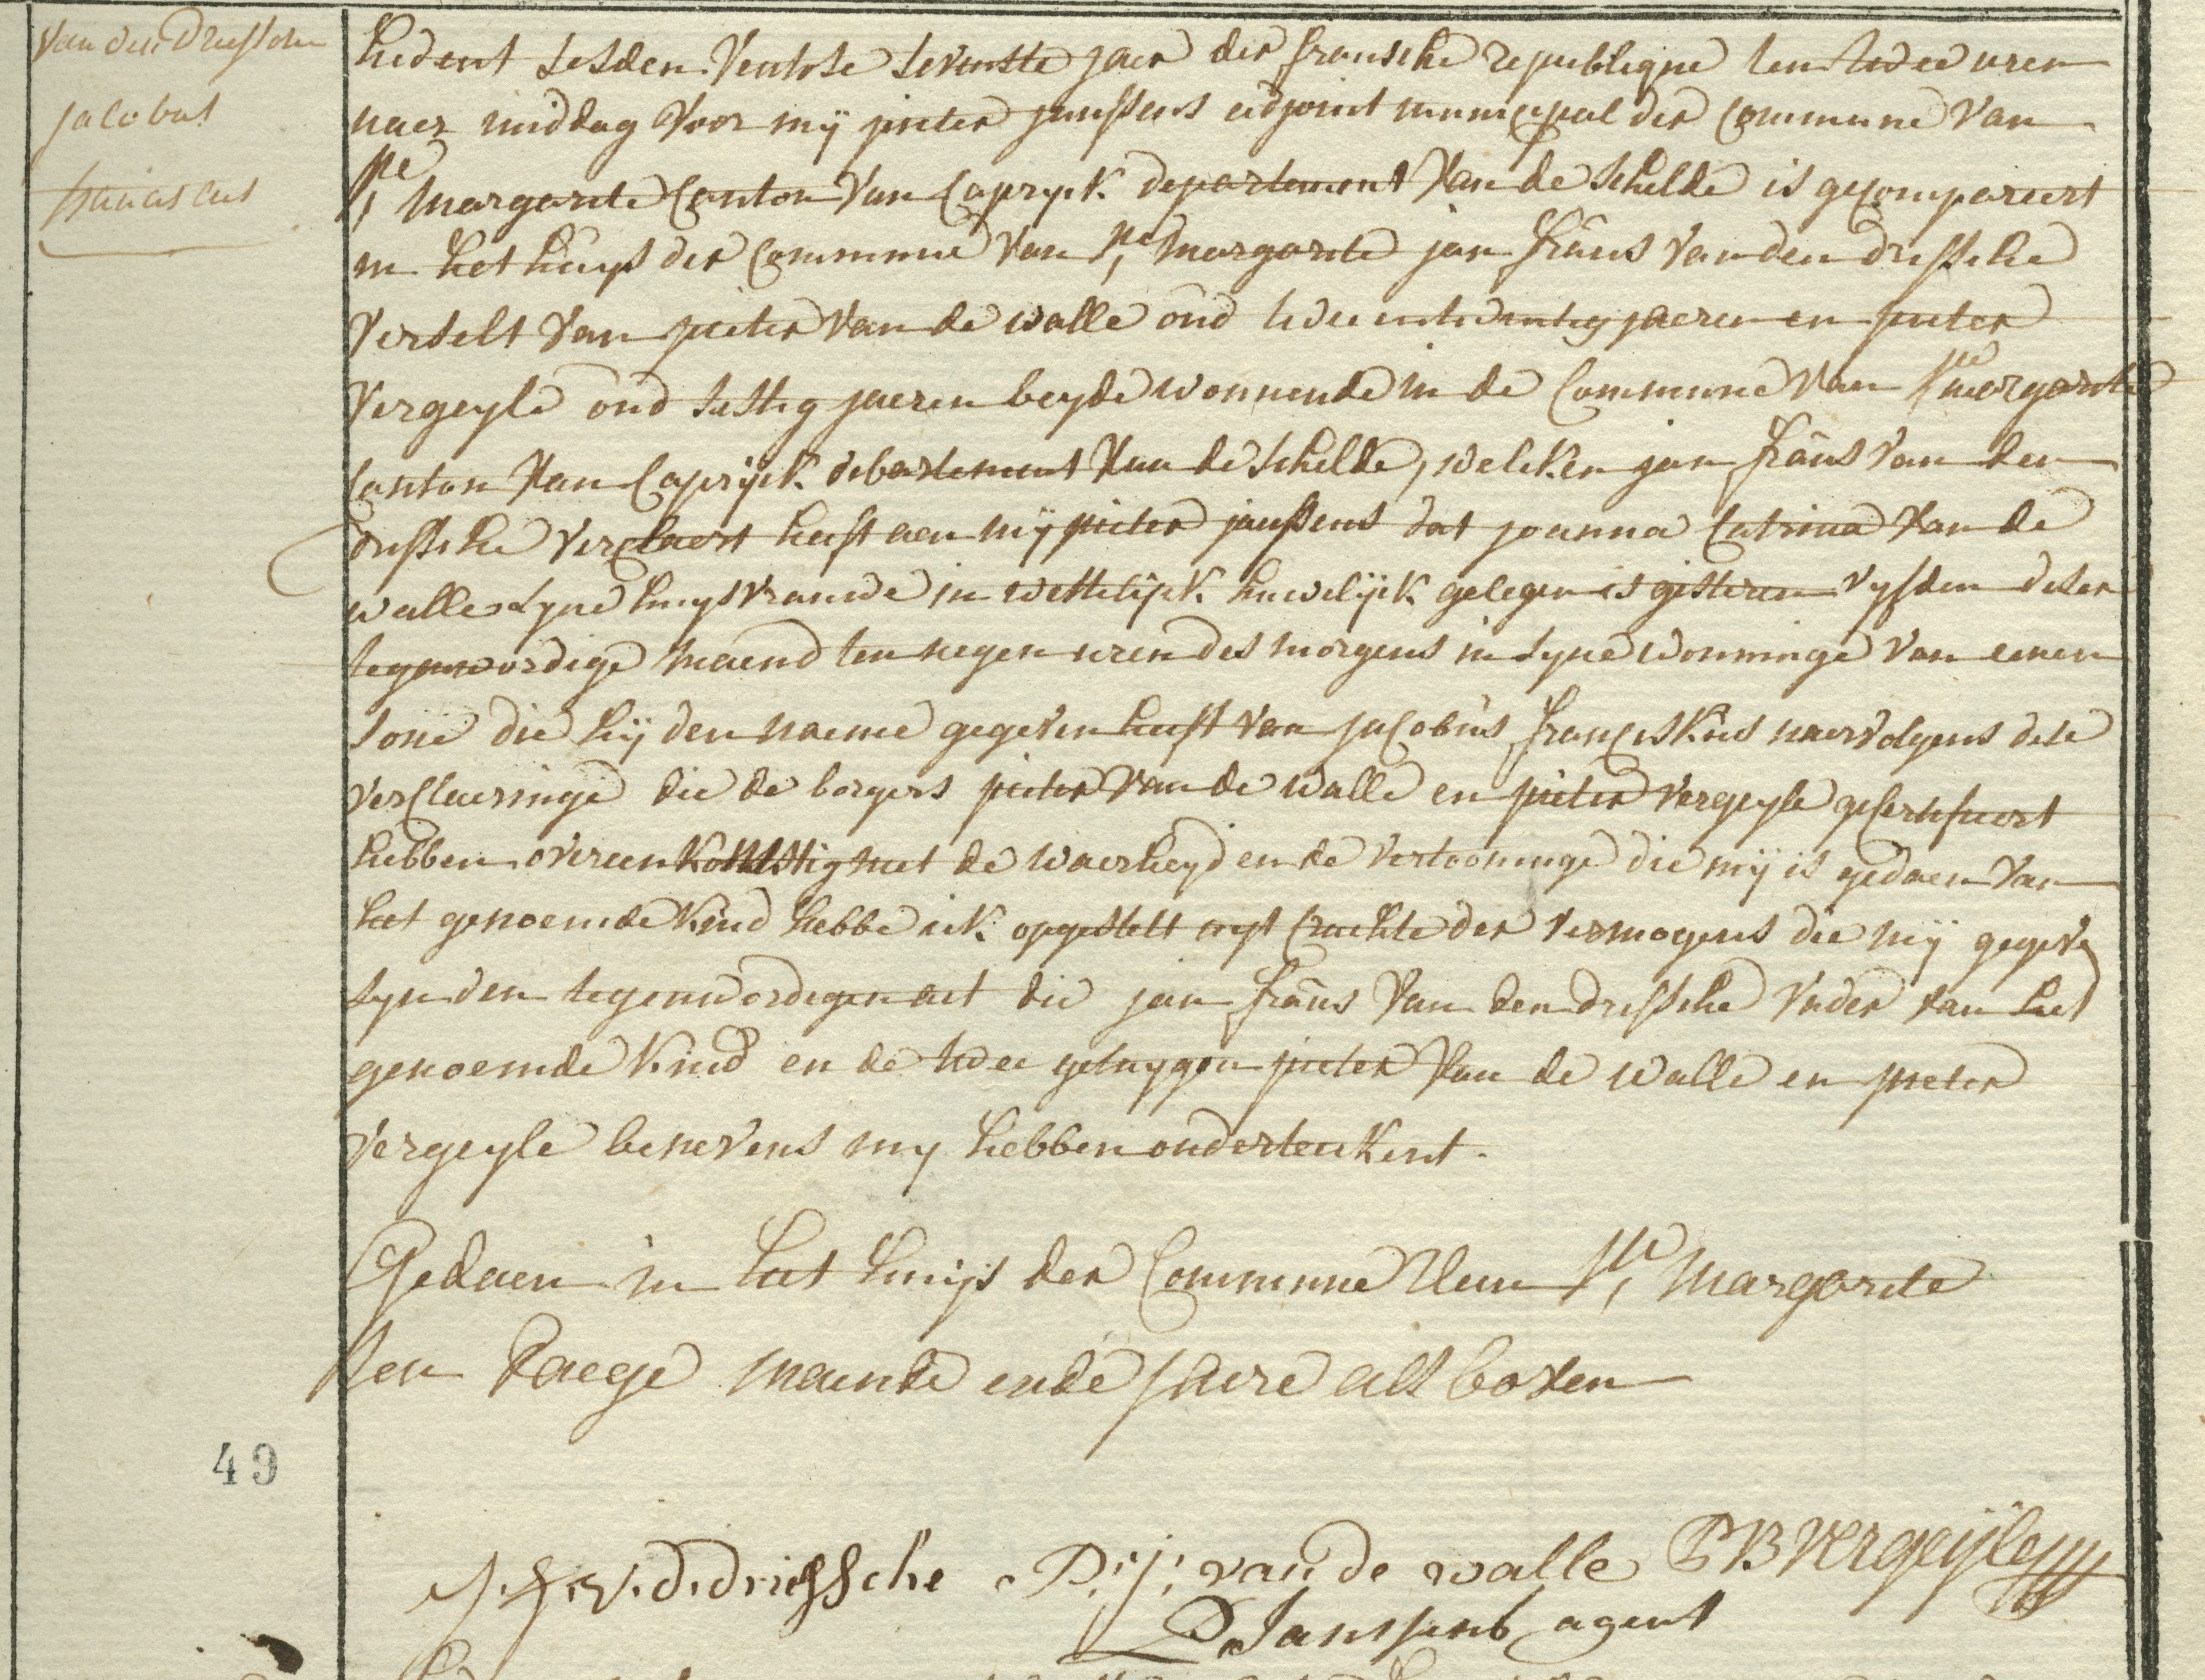 Van den Driessche
jacobus
franciscus
hedent sesden Ventose sevenste jaer der fransche republique ten twee uren
naer middag voor mij pieter janssens adjoint municipal der commune van
Ste margarite Canton van Capryck departement van de schelde is gecompareert
in het huys der commune van Ste margarite jan frans van den dressche
verselt van pieter van de walle oud twee entwintig jaeren en pieter
vergeyle oud sestig jaeren beyde wonnende in de Commune van Ste margarite
Canton van Caprijck debartement van de schelde, welcken jan frans van den
dressche verclaert heeft aen mij pieter janssens dat joanna Catrina van de
walle syne huysvrauwe in wettelijck huwelijck gelegen is gisteren vyfden deser
tegenwordige maend ten negen uren des morgens in syne wonninge van eenen
sone die hij den naeme gegeven heeft van jacobus franciskus naervolgens dese
verclaeringe die de borgers pieter van de walle en pieter vergeyle gesertifieert
hebben overeenkomstig met de waerheyd en de vertooninge die mij is gedaen van
het genoemde kind hebbe ick opgestelt uyt crachte der vermogens die mij gegeve
syn den tegenwordegen act die jan frans van den dressche vader van het
genoemde kind en de twee getuygen pieter van de walle en pieter
vergeyle benevens my hebben onderteekent.
Gedaen in het huijs der Commune Van Ste, Margarite
Den Daege maende ende jaere als boven
49
J. f. v. d. driessche P: j: van de walle P B vergeijle
P Janssens agent